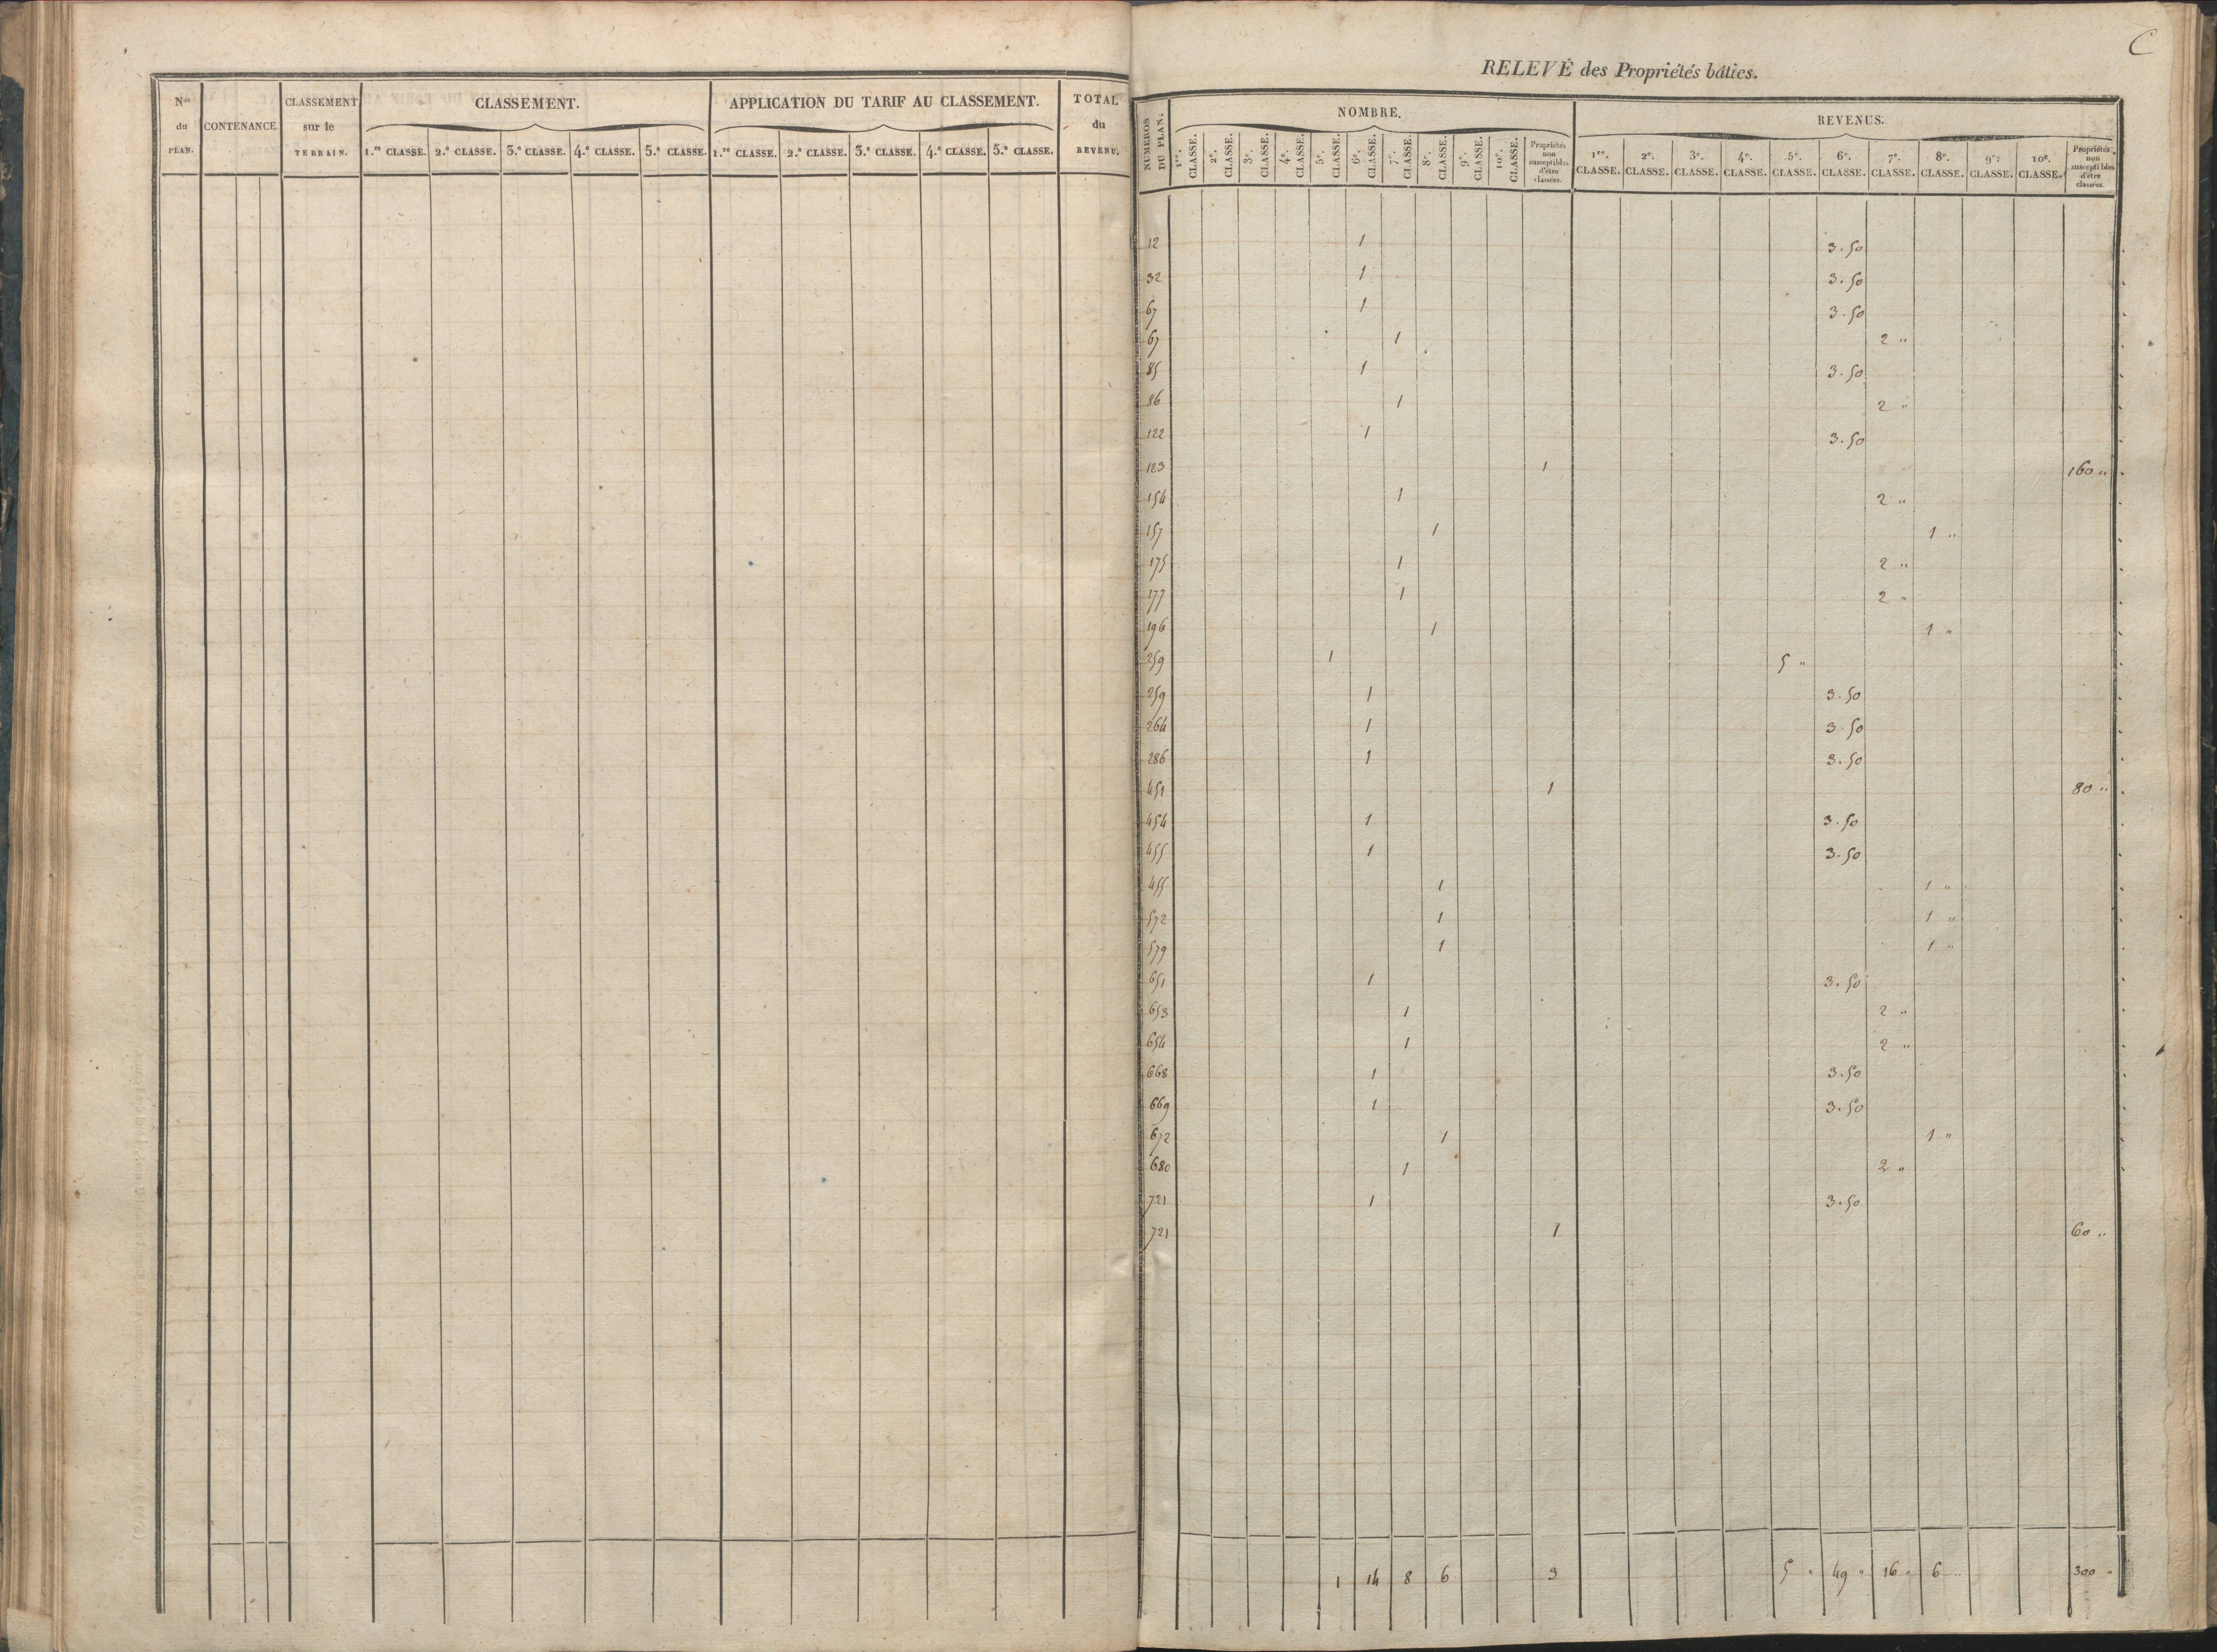 N.os du PLAN. CONTENANCE CLASSEMENT sur le TERRAIN. CLASSEMENT. APPLICATION DU TARIF AU CLASSEMENT. TOTAL du REVENU.
1.re CLASSE. 2.e CLASSE. 3.e CLASSE. 4.e CLASSE. 5.e CLASSE. 1.re CLASSE. 2.e CLASSE. 3.e CLASSE. 4.e CLASSE. 5.e CLASSE.
C
RELEVÉ des Propriétés bâties.
NUMEROS DU PLAN. NOMBRE. REVENUS.
1re. CLASSE. 2e. CLASSE. 3e. CLASSE. 4e. CLASSE. 5e. CLASSE. 6e. CLASSE. 7e. CLASSE. 8e. CLASSE. 9e. CLASSE. 10e. CLASSE. Propriétés non susceptibles d'être classées. 1re. CLASSE. 2e. CLASSE. 3e. CLASSE. 4e. CLASSE. 5e. CLASSE. 6e. CLASSE. 7e. CLASSE. 8e. CLASSE. 9e. CLASSE. 10e. CLASSE. Propriétés non susceptibles d'être classées.
12 1 3.50
32 1 3.50
67 1 3.50
67 1 2 "
85 1 3.50
86 1 2 "
122 1 3.50
123 1 160 "
154 1 2 "
157 1 1 "
175 1 2 "
177 1 2 "
196 1 1 "
259 1 5 "
259 1 3.50
264 1 3.50
286 1 3.50
451 1 80 "
454 1 3.50
455 1 3.50
455 1 1 "
572 1 1 "
579 1 1 "
651 1 3.50
653 1 2 "
654 1 2 "
668 1 3.50
669 1 3.50
672 1 1 "
680 1 2 "
721 1 3.50
721 1 60 "
1 14 8 6 3 5 " 49 " 16 " 6 " 300 "